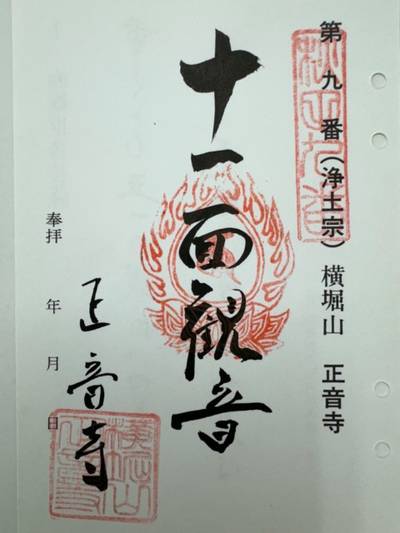 第九番(浄土宗)横堀山 正音寺
十一面観音
奉拝 年 月 日
正音寺